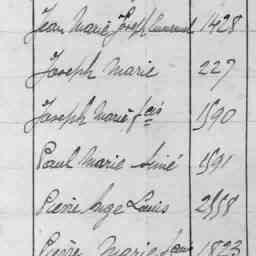 Jean Marie Joseph 1428
Joseph Marie 227
Joseph Marie fçis 1590
Paul Marie Aimé 1591
Pierre Ange Louis 2558
Pierre Marie 1823